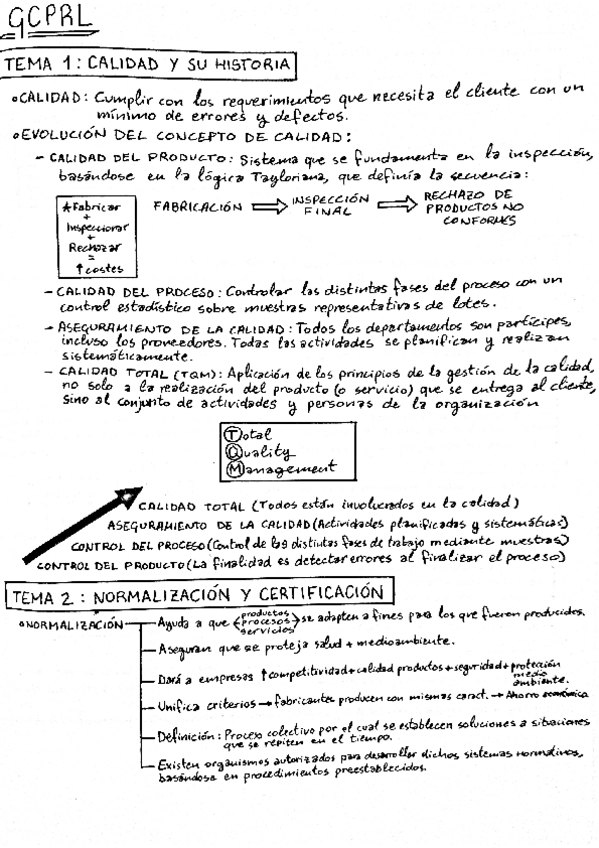 GCPRL
TEMA 1: CALIDAD Y SU HISTORIA
• CALIDAD: Cumplir con los requerimientos que necesita el cliente con un
mínimo de errores y defectos.
• EVOLUCIÓN DEL CONCEPTO DE CALIDAD:
- CALIDAD DEL PRODUCTO: Sistema que se fundamenta en la inspección,
basándose en la lógica Tayloriana, que definía la secuencia:
★Fabricar
+
Inspeccionar
+
Rechazar
=
↑costes
FABRICACIÓN ⇒ INSPECCIÓN FINAL ⇒ RECHAZO DE PRODUCTOS NO CONFORMES
- CALIDAD DEL PROCESO: Controlar las distintas fases del proceso con un
control estadístico sobre muestras representativas de lotes.
- ASEGURAMIENTO DE LA CALIDAD: Todos los departamentos son partícipes,
incluso los proveedores. Todas las actividades se planifican y realizan
sistemáticamente.
- CALIDAD TOTAL (TQM): Aplicación de los principios de la gestión de la calidad,
no solo a la realización del producto (o servicio) que se entrega al cliente,
sino al conjunto de actividades y personas de la organización
Total
Quality
Management
CALIDAD TOTAL (Todos están involucrados en la calidad)
ASEGURAMIENTO DE LA CALIDAD (Actividades planificadas y sistemáticas)
CONTROL DEL PROCESO (Control de las distintas fases de trabajo mediante muestras)
CONTROL DEL PRODUCTO (La finalidad es detectar errores al finalizar el proceso)
TEMA 2: NORMALIZACIÓN Y CERTIFICACIÓN
• NORMALIZACIÓN
Ayuda a que productos procesos servicios se adapten a fines para los que fueron producidos.
Aseguran que se proteja salud + medioambiente.
Dará a empresas ↑competitividad + calidad productos + seguridad + protección medio ambiente.
Unifica criterios → fabricantes producen con mismas caract. → Ahorro económico
Definición: Proceso colectivo por el cual se establecen soluciones a situaciones
que se repiten en el tiempo.
Existen organismos autorizados para desarrollar dichos sistemas normativos,
basándose en procedimientos preestablecidos.